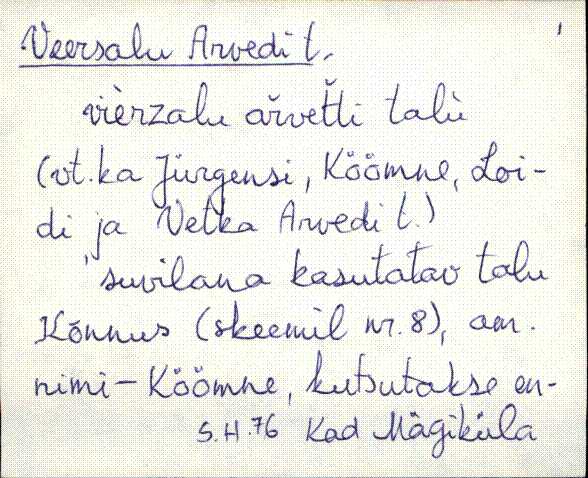 Veersalu Arvedi t.
vièrzalu ăřvet̆ti talù
(vt.ka Jürgensi, Köömne, Loi-
di ja Vetka Arvedi t.)
suvilana kasutatav talu
Kõnnus (skeemil nr. 8), am.
nimi – Köömne, kutsutakse en-
S.H.76 Kad Mägiküla